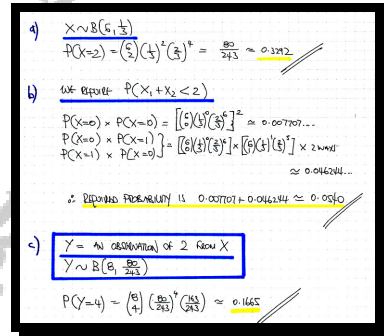 a) X ~ B(6, 1/3)
P(X=2) = (6 2) (1/3)^2 (2/3)^4 = 80/243 ≈ 0.3292
b) WE REQUIRE P(X₁+X₂ < 2)
P(X=0) × P(X=0) = [(6 0)(1/3)^0(2/3)^6]^2 ≈ 0.007707...
P(X=0) × P(X=1)
P(X=1) × P(X=0) } = [(6 0)(1/3)^0(2/3)^6] × [(6 1)(1/3)^1(2/3)^5] × 2 WAYS
≈ 0.046244...
∴ REQUIRED PROBABILITY IS 0.007707 + 0.046244 ≈ 0.0540
c) Y = AN OBSERVATION OF 2 FROM X
Y ~ B(8, 80/243)
P(Y=4) = (8 4) (80/243)^4 (163/243)^4 ≈ 0.1665